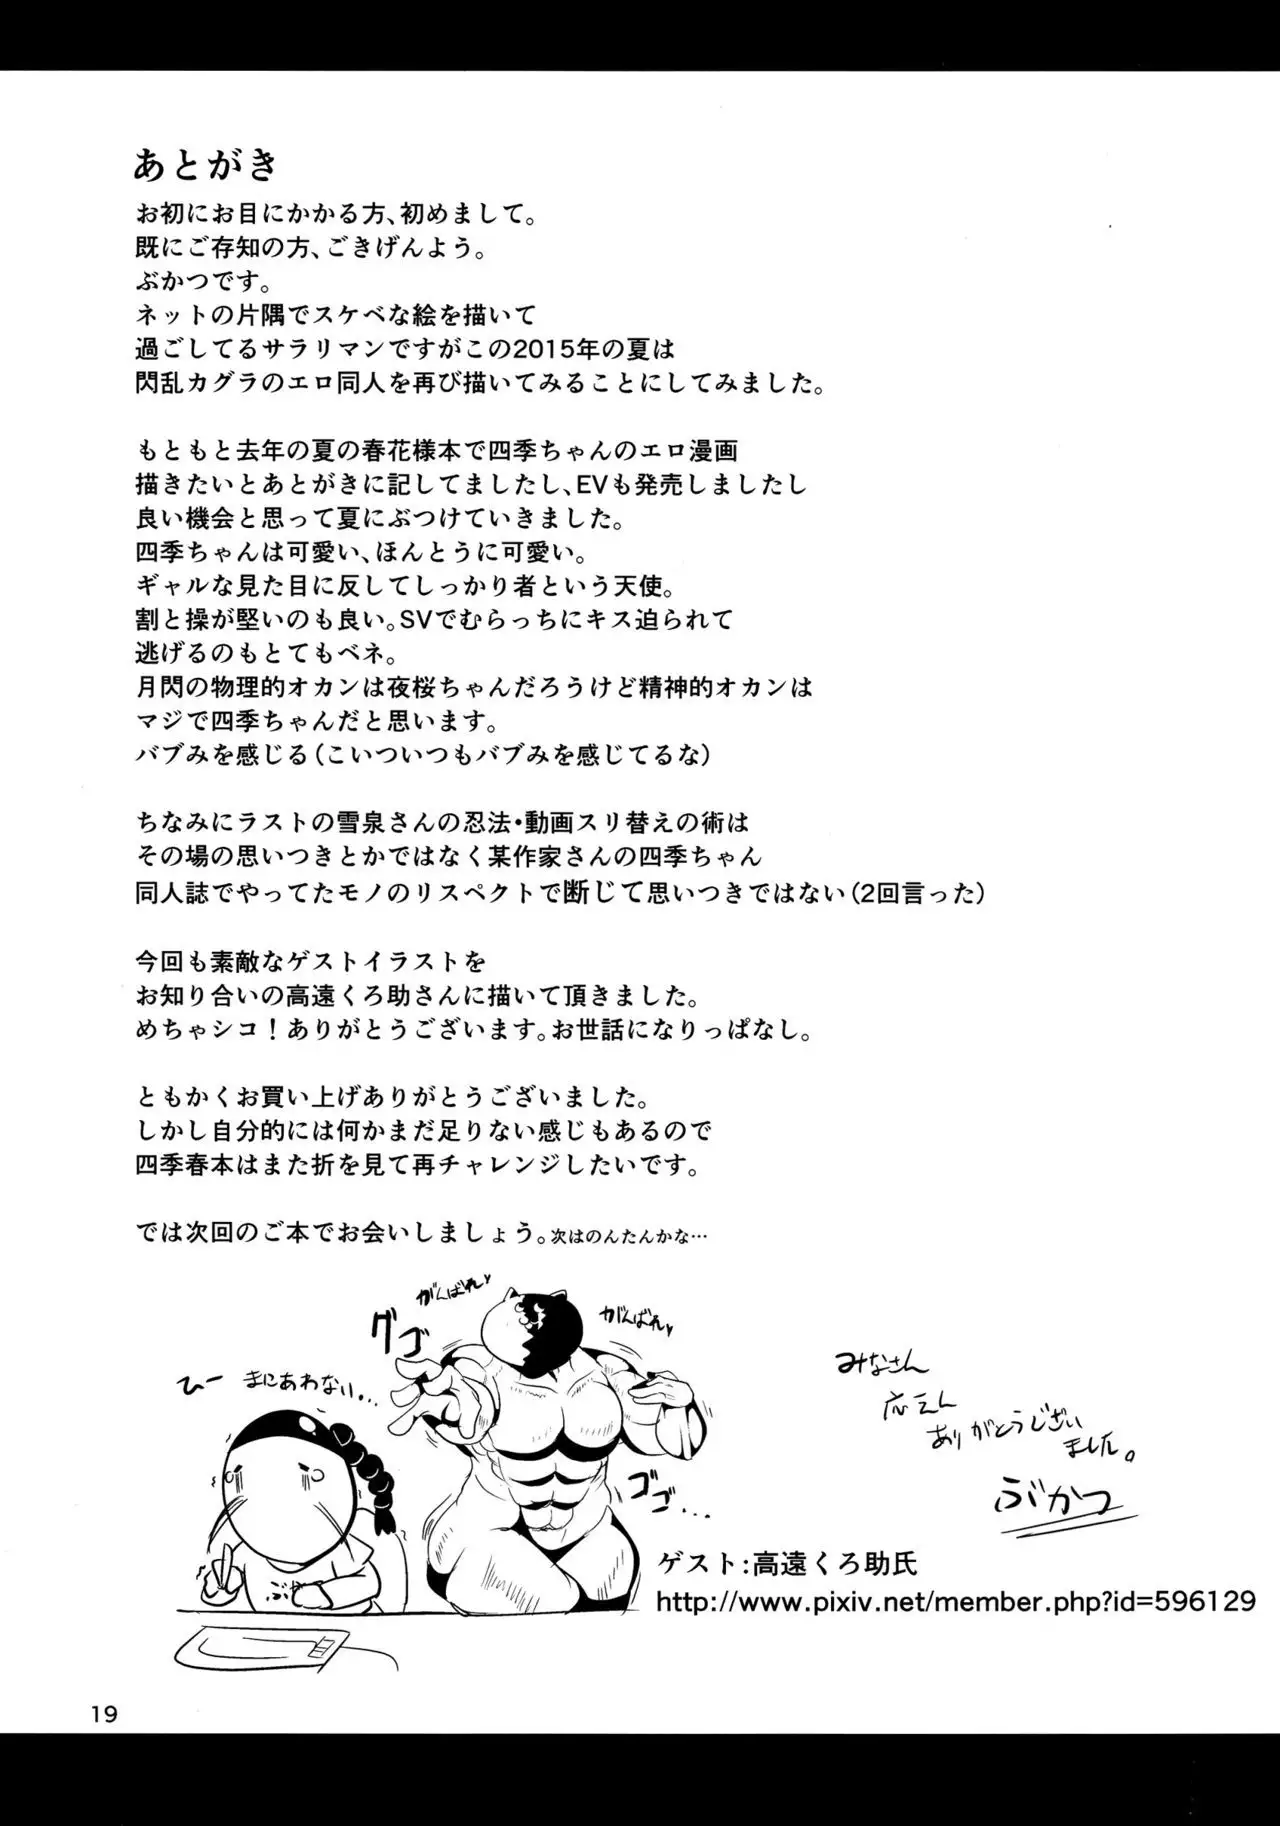 あとがき
お初にお目にかかる方、初めまして。
既にご存知の方、ごきげんよう。
ぶかつです。
ネットの片隅でスケベな絵を描いて
過ごしてるサラリマンですがこの2015年の夏は
閃乱カグラのエロ同人を再び描いてみることにしてみました。
もともと去年の夏の春花様本で四季ちゃんのエロ漫画
描きたいとあとがきに記してましたし、EVも発売しましたし
良い機会と思って夏にぶつけていきました。
四季ちゃんは可愛い、ほんとうに可愛い。
ギャルな見た目に反してしっかり者という天使。
割と操が堅いのも良い。SVでむらっちにキス迫られて
逃げるのもとてもベネ。
月閃の物理的オカンは夜桜ちゃんだろうけど精神的オカンは
マジで四季ちゃんだと思います。
バブみを感じる(こいついつもバブみを感じてるな)
ちなみにラストの雪泉さんの忍法・動画スリ替えの術は
その場の思いつきとかではなく某作家さんの四季ちゃん
同人誌でやってたモノのリスペクトで断じて思いつきではない(2回言った)
今回も素敵なゲストイラストを
お知り合いの高遠くろ助さんに描いて頂きました。
めちゃシコ!ありがとうございます。お世話になりっぱなし。
ともかくお買い上げありがとうございました。
しかし自分的には何かまだ足りない感じもあるので
四季春本はまた折を見て再チャレンジしたいです。
では次回のご本でお会いしましょう。次はのんたんかな…
がんばれ♥
がんばれ♥
グゴゴ
ひー まにあわない...
ゴゴゴ...
ぶか
みなさん
応えん
ありがとうござい
ました。
ぶかつ
ゲスト:高遠くろ助氏
http://www.pixiv.net/member.php?id=596129
19